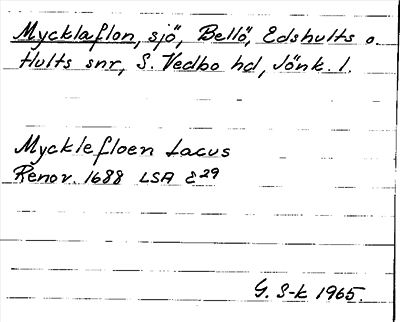 Mycklaflon, sjö, Bellö, Edshults o.
Hults snr, S. Vedbo hd, Jönk. l.
Mycklefloen Lacus
Renov. 1688 LSA E29
G. S-k 1965.